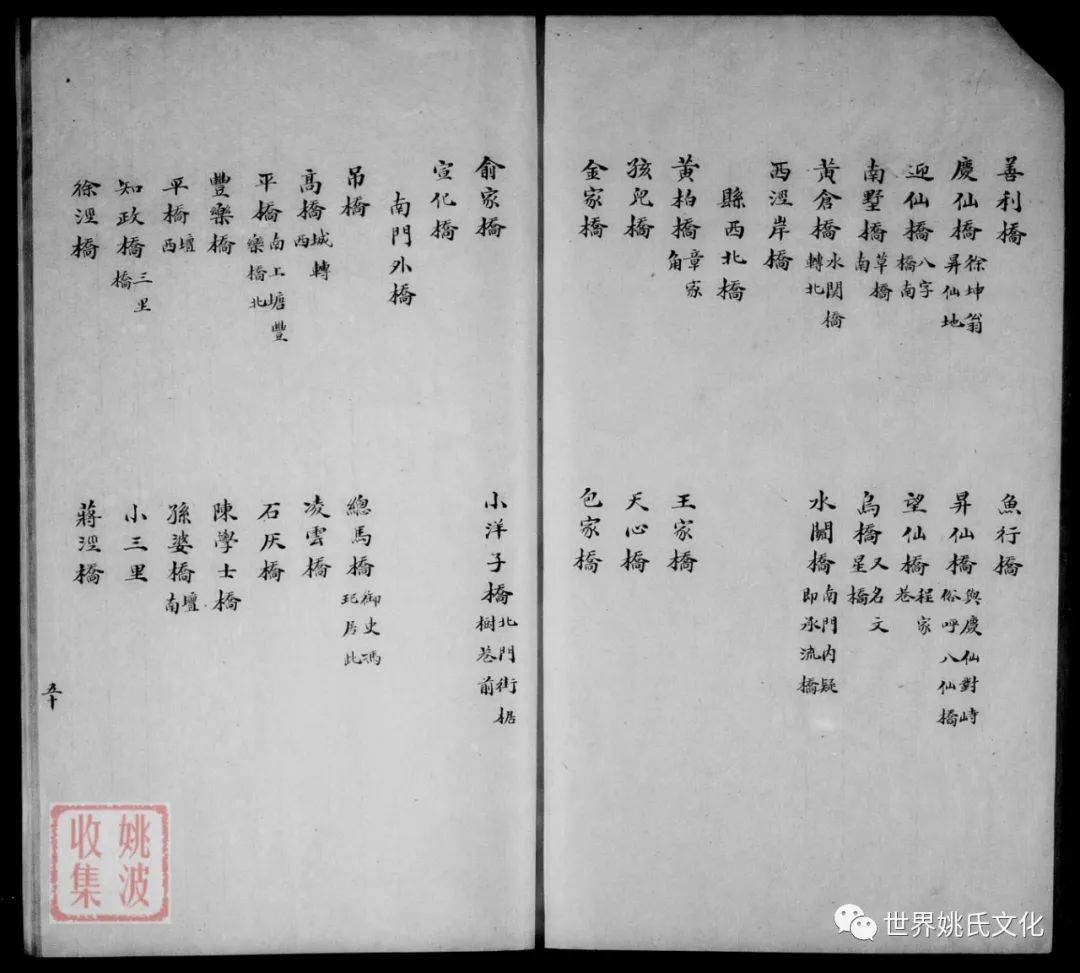 善利橋　魚行橋
慶仙橋 徐坤翁昇仙地　昇仙橋 與慶仙對峙俗呼八仙橋
迎仙橋 八字橋南　望仙橋 程家巷
南墅橋 草橋南　烏橋 又名文星橋
黃倉橋 水関橋轉北　水關橋 南門内疑即承流橋
西涇岸橋
縣西北橋
黃柏橋 章家角　王家橋
孩兒橋　天心橋
金家橋　包家橋
俞家橋　小洋子橋 北門街椐樹巷前
宣化橋
南門外橋
吊橋　總馬橋 御史馮玘居此
高橋 城轉西　凌雲橋
平橋 南上塘豐樂橋北　石灰橋
豐樂橋　陳學士橋
平橋 壇西　孫婆橋 壇南
知政橋 三里橋　小三里
徐涇橋　蔣涇橋
五十
姚波
收集
世界姚氏文化